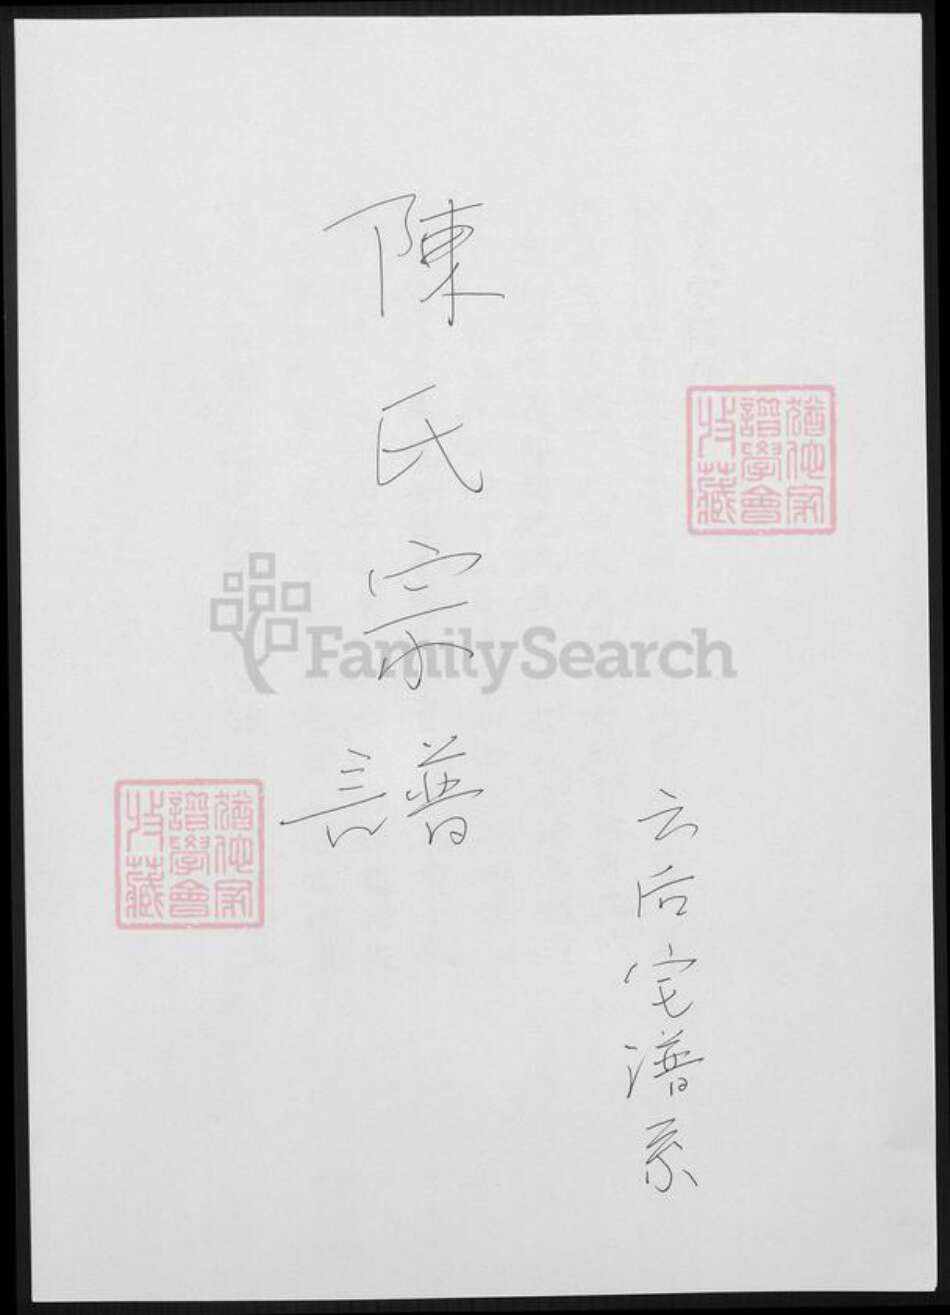 陳氏宗譜
云后宅谱系
猶他家
譜學會
收藏
FamilySearch
猶他家
譜學會
收藏